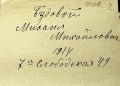 Будовой
Михаил
Михайлович
1914
7ая Слободская 49